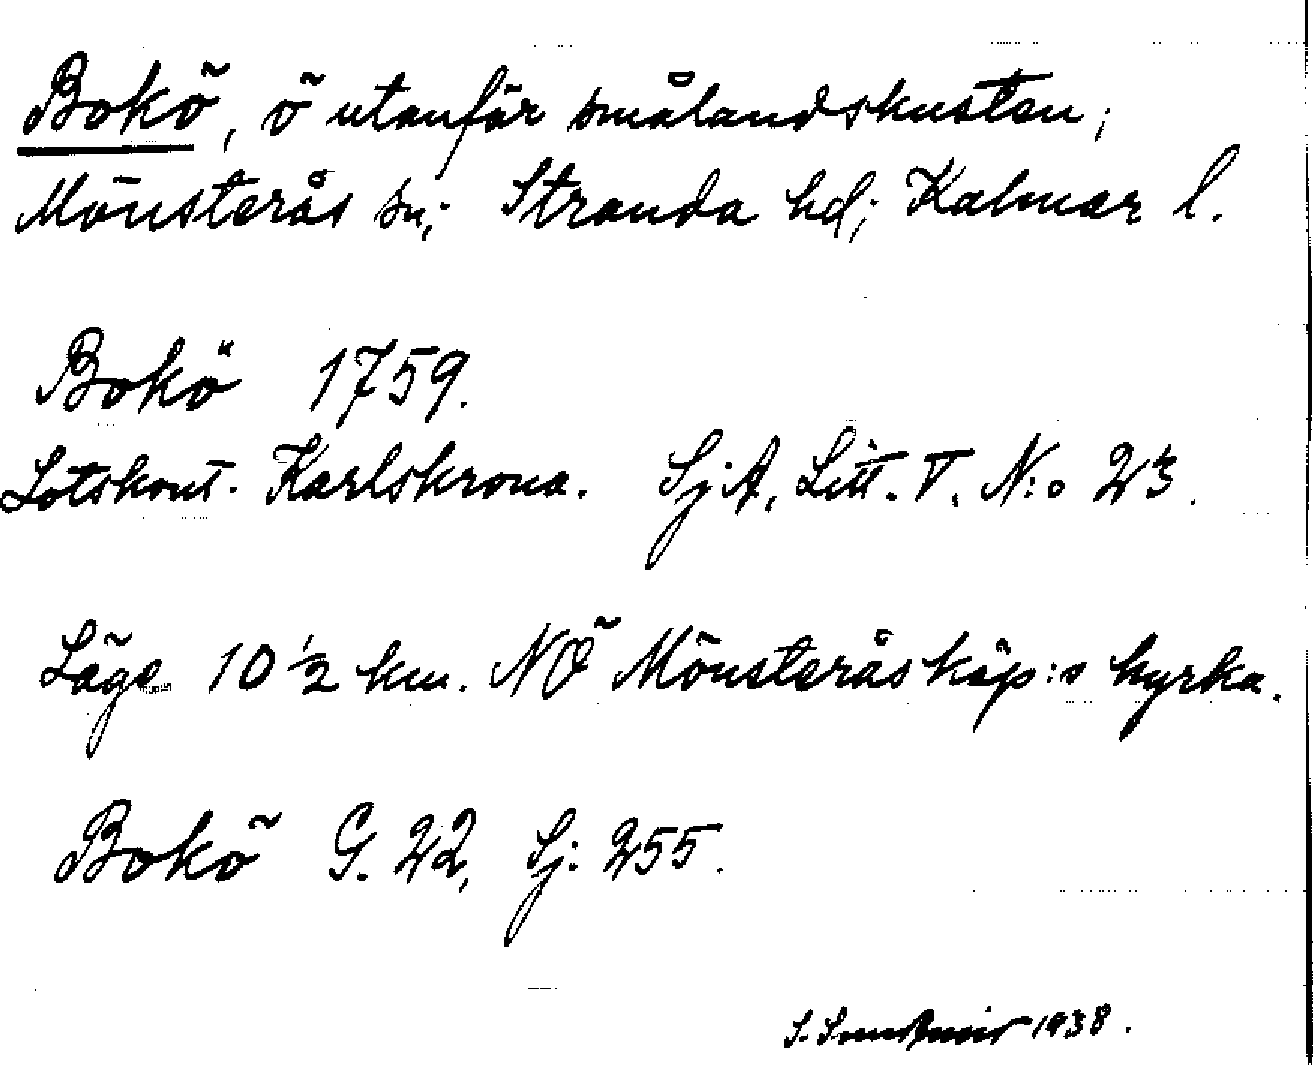 Bokö, ö utanför smålandskusten;
Mönsterås sn; Stranda hd; Kalmar l.
Bokö 1759.
Lotskont. Karlskrona. SjA, Litt. V. N:o 23.
Läge 10 ½ km. NÖ Mönsterås köp:s kyrka.
Bokö G. 22, Sj: 255.
S. 1938.